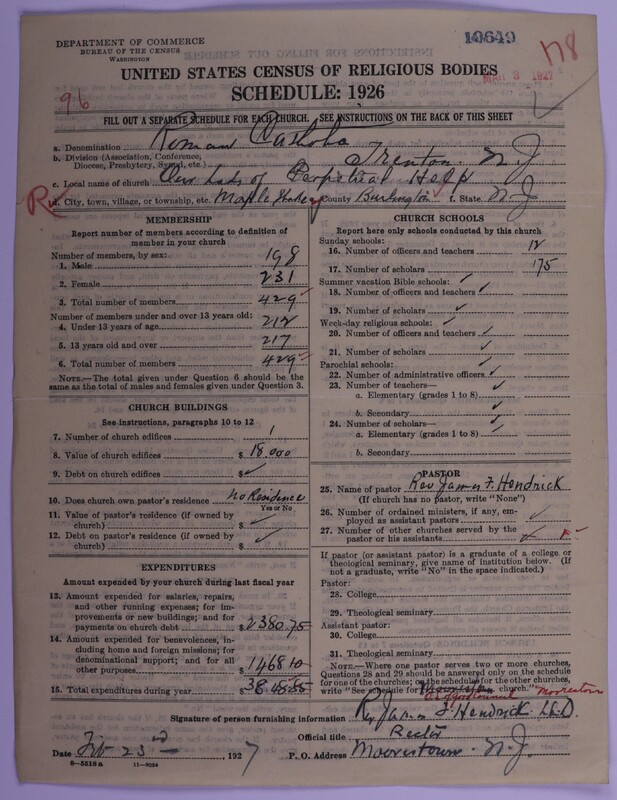 DEPARTMENT OF COMMERCE
BUREAU OF THE CENSUS
WASHINGTON
10649
178
UNITED STATES CENSUS OF RELIGIOUS BODIES
MAR 3 1927
SCHEDULE: 1926
96
FILL OUT A SEPARATE SCHEDULE FOR EACH CHURCH. SEE INSTRUCTIONS ON THE BACK OF THIS SHEET
a. Denomination Roman Catholic
b. Division (Association, Conference, Diocese, Presbytery, Synod, etc.) Trenton N J
c. Local name of church Our Lady of Perpetual Help
R
d. City, town, village, or township, etc. Maple Shade e. County Burlington f. State N J
MEMBERSHIP
Report number of members according to definition of member in your church
Number of members, by sex:
1. Male 198
2. Female 231
3. Total number of members 429
Number of members under and over 13 years old:
4. Under 13 years of age 212
5. 13 years old and over 217
6. Total number of members 429
NOTE.—The total given under Question 6 should be the same as the total of males and females given under Question 3.
CHURCH BUILDINGS
See instructions, paragraphs 10 to 12
7. Number of church edifices 1
8. Value of church edifices $ 18,000
9. Debt on church edifices $ ✓
10. Does church own pastor's residence No Residence
Yes or No
11. Value of pastor's residence (if owned by church) $ ✓
12. Debt on pastor's residence (if owned by church) $ ✓
EXPENDITURES
Amount expended by your church during last fiscal year
13. Amount expended for salaries, repairs, and other running expenses; for improvements or new buildings; and for payments on church debt $ 2380.75
14. Amount expended for benevolences, including home and foreign missions; for denominational support; and for all other purposes $ 1468 10
15. Total expenditures during year
CHURCH SCHOOLS
Report here only schools conducted by this church
Sunday schools:
16. Number of officers and teachers 12
17. Number of scholars 175
Summer vacation Bible schools: ✓
18. Number of officers and teachers ✓
19. Number of scholars ✓
Week-day religious schools: ✓
20. Number of officers and teachers ✓
21. Number of scholars ✓
Parochial schools: ✓
22. Number of administrative officers ✓
23. Number of teachers— ✓
a. Elementary (grades 1 to 8)
b. Secondary ✓
24. Number of scholars— ✓
a. Elementary (grades 1 to 8) ✓
b. Secondary
PASTOR
25. Name of pastor Rev James F. Hendrick
(If church has no pastor, write "None")
26. Number of ordained ministers, if any, employed as assistant pastors ✓
27. Number of other churches served by the pastor or his assistants ✓
If pastor (or assistant pastor) is a graduate of a college or theological seminary, give name of institution below. (If not a graduate, write "No" in the space indicated.)
Pastor:
28. College
29. Theological seminary
Assistant pastor:
30. College
31. Theological seminary
NOTE.—Where one pastor serves two or more churches, Questions 28 and 29 should be answered only on the schedule for one of the churches; on the schedules for the other churches, write "See schedule for church." Moorestown
Signature of person furnishing information Rev. James F Hendrick LL.D.
Official title Rector
Date Feb 23rd 1927
P. O. Address Moorestown N. J.
8—5518a
11—9234